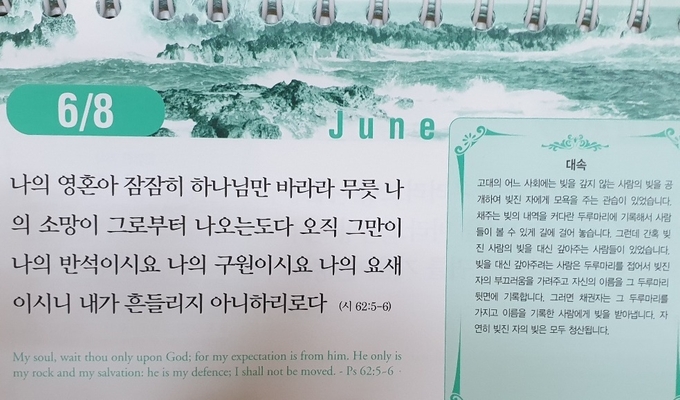 6/8
June
나의 영혼아 잠잠히 하나님만 바라라 무릇 나
의 소망이 그로부터 나오는도다 오직 그만이
나의 반석이시요 나의 구원이시요 나의 요새
이시니 내가 흔들리지 아니하리로다 (시 62:5-6)
My soul, wait thou only upon God; for my expectation is from him. He only is
my rock and my salvation: he is my defence; I shall not be moved. - Ps 62:5-6
대속
고대의 어느 사회에는 빚을 갚지 않는 사람의 빚을 공
개하여 빚진 자에게 모욕을 주는 관습이 있었습니다.
채주는 빚의 내역을 커다란 두루마리에 기록해서 사람
들이 볼 수 있게 길에 걸어 놓습니다. 그런데 간혹 빚
진 사람의 빚을 대신 갚아주는 사람들이 있었습니다.
빚을 대신 갚아주려는 사람은 두루마리를 접어서 빚진
자의 부끄러움을 가려주고 자신의 이름을 그 두루마리
뒷면에 기록합니다. 그러면 채권자는 그 두루마리를
가지고 이름을 기록한 사람에게 빚을 받아냅니다. 자
연히 빚진 자의 빚은 모두 청산됩니다.